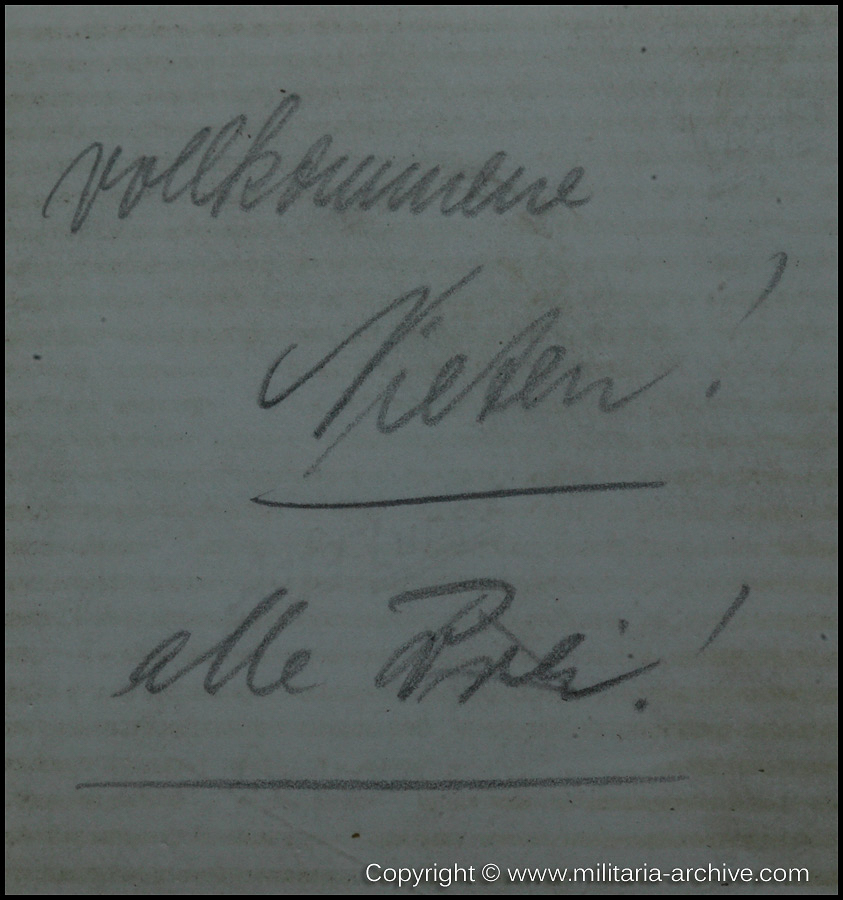 vollkommene
Nieten!
alle Drei!
Copyright © www.militaria-archive.com